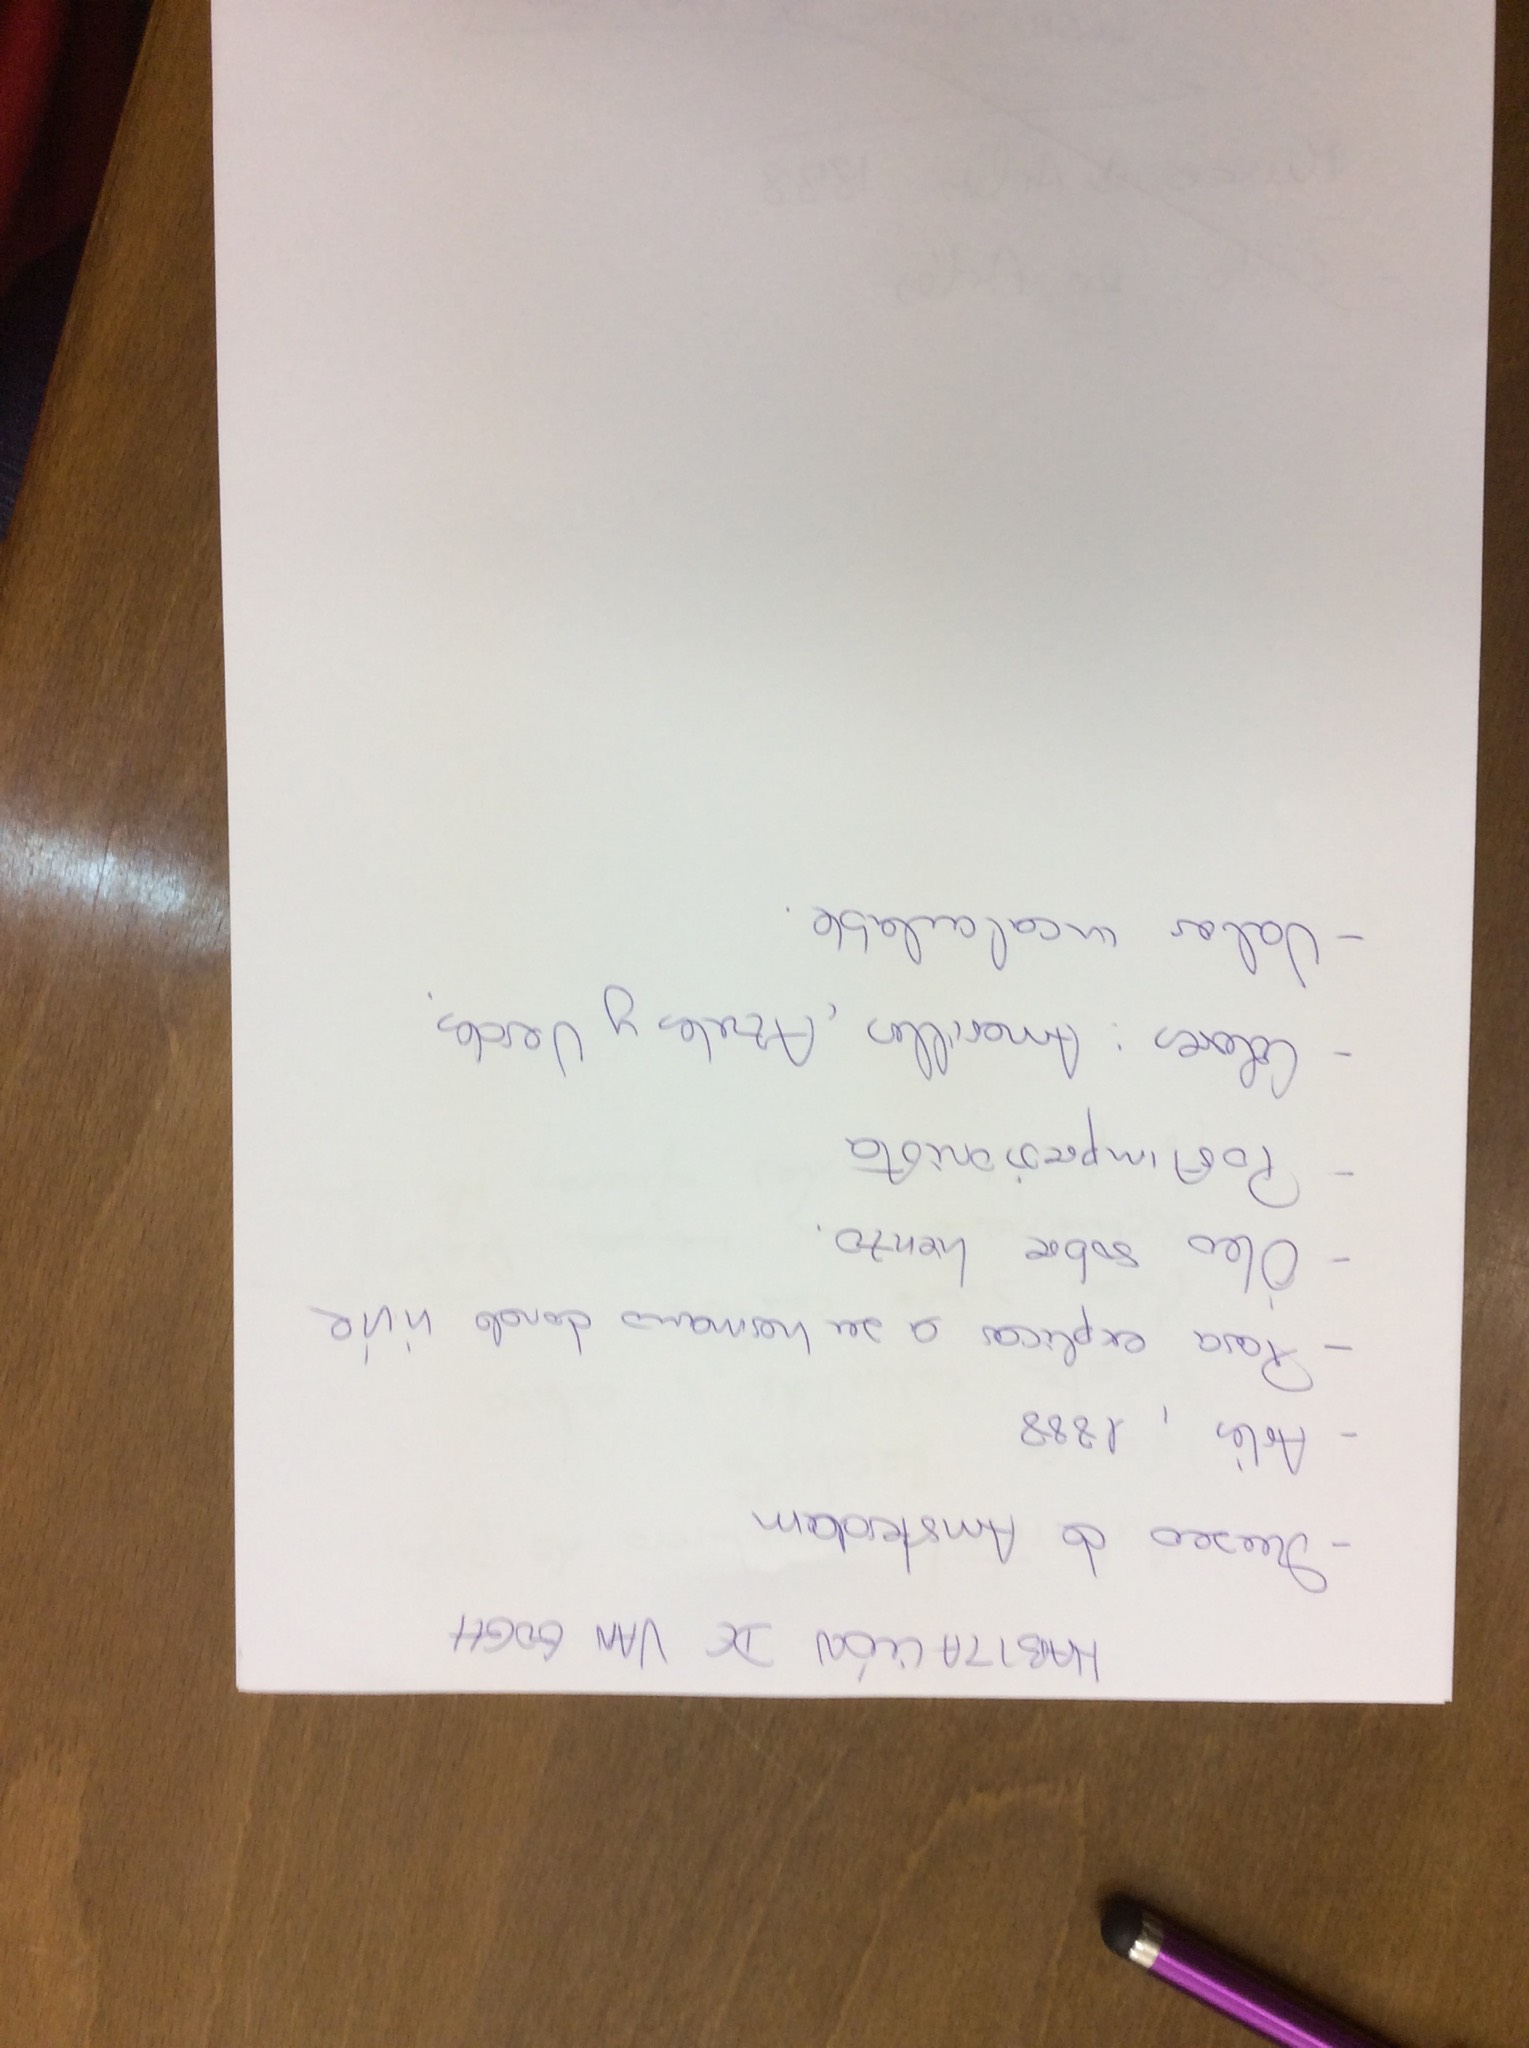 HABITACIÓN DE VAN GOGH
- Museo de Amsterdam
- Arlés, 1888
- Para explicar a su hermano donde vive
- Óleo sobre lienzo.
- Postimpresionista
- Colores: Amarillos, Azules y Verdes.
- Valor incalculable.